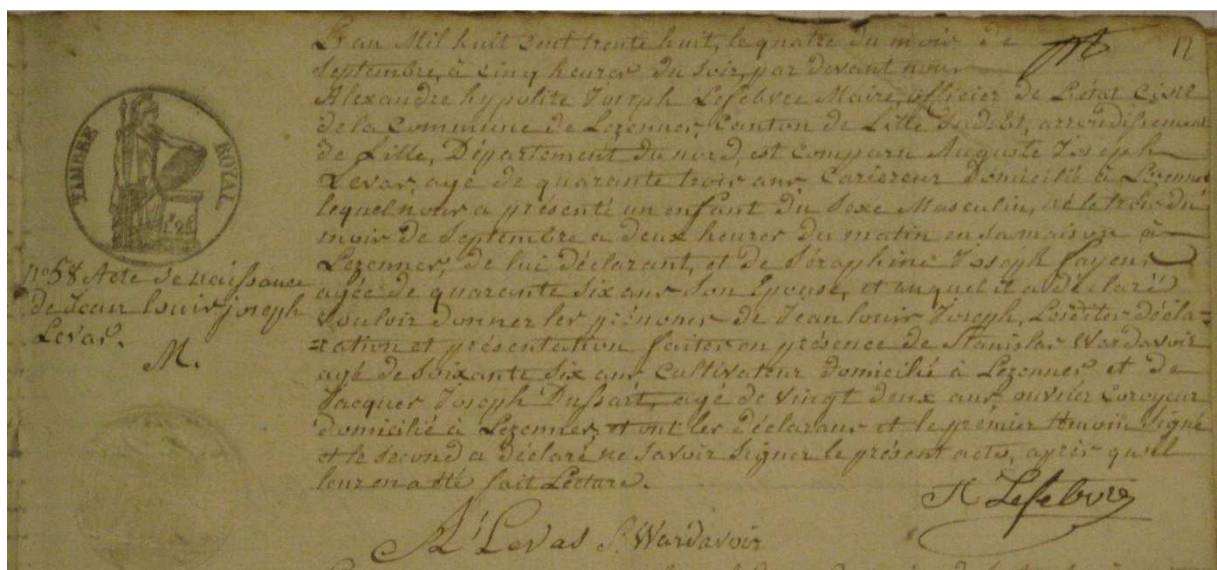 12
L'an Mil huit Cent trente huit, le quatre du mois de
Septembre, à Cinq heures du Soir, par devant nous
Alexandre hypolite Joseph Lefebvre Maire, officier de L'état Civil
de la Commune de Lezennes, Canton de Lille Sud Est, arrondissement
de Lille, Département du nord, est Comparu Auguste Joseph
Levas, agé de quarante trois ans Cariereur Domicilié à Lezennes
lequel nous a présenté un enfant du Sexe Masculin, né le trois du
mois de Septembre a deux heures du matin en sa maison à
Lezennes, de lui déclarant, et de Séraphine Joseph fayen
agée de quarante Six ans Son Epouse, et auquel il a déclaré
Vouloir donner les prénoms de Jean louis Joseph, Lesdites décla=
=ration et présentation faites en présence de Stanislas Wardavoir
agé de Soixante Six ans Cultivateur domicilié à Lezennes et de
Jacques Joseph Dussart, agé de Vingt deux ans, ouvrier Coroyeur
domicilié à Lezennes, et ont les déclarans et le prémier témoin Signé
et le Second a déclaré ne Savoir Signer le présent acte, après qu'il
leur en a été fait Lecture.
TIMBRE ROYAL
1.25
n° 58 Acte de naissance
de Jean louis joseph
Levas.
M.
H Lefebvre
Ate Levas St Wardavoir